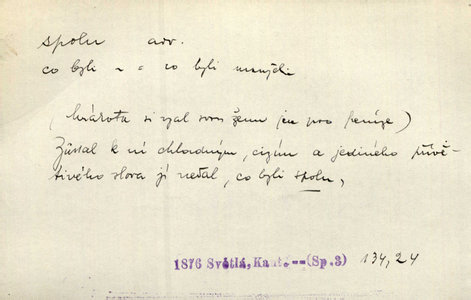 spolu adv.
co byli ~ = co byli manželi
( si vzal svou ženu jen pro peníze)
Zůstal k ní chladným, cizím a jediného přívě-
tivého slova jí nedal, co byli spolu,
1876 Světlá, Kant. -- (Sp.3) 134,24